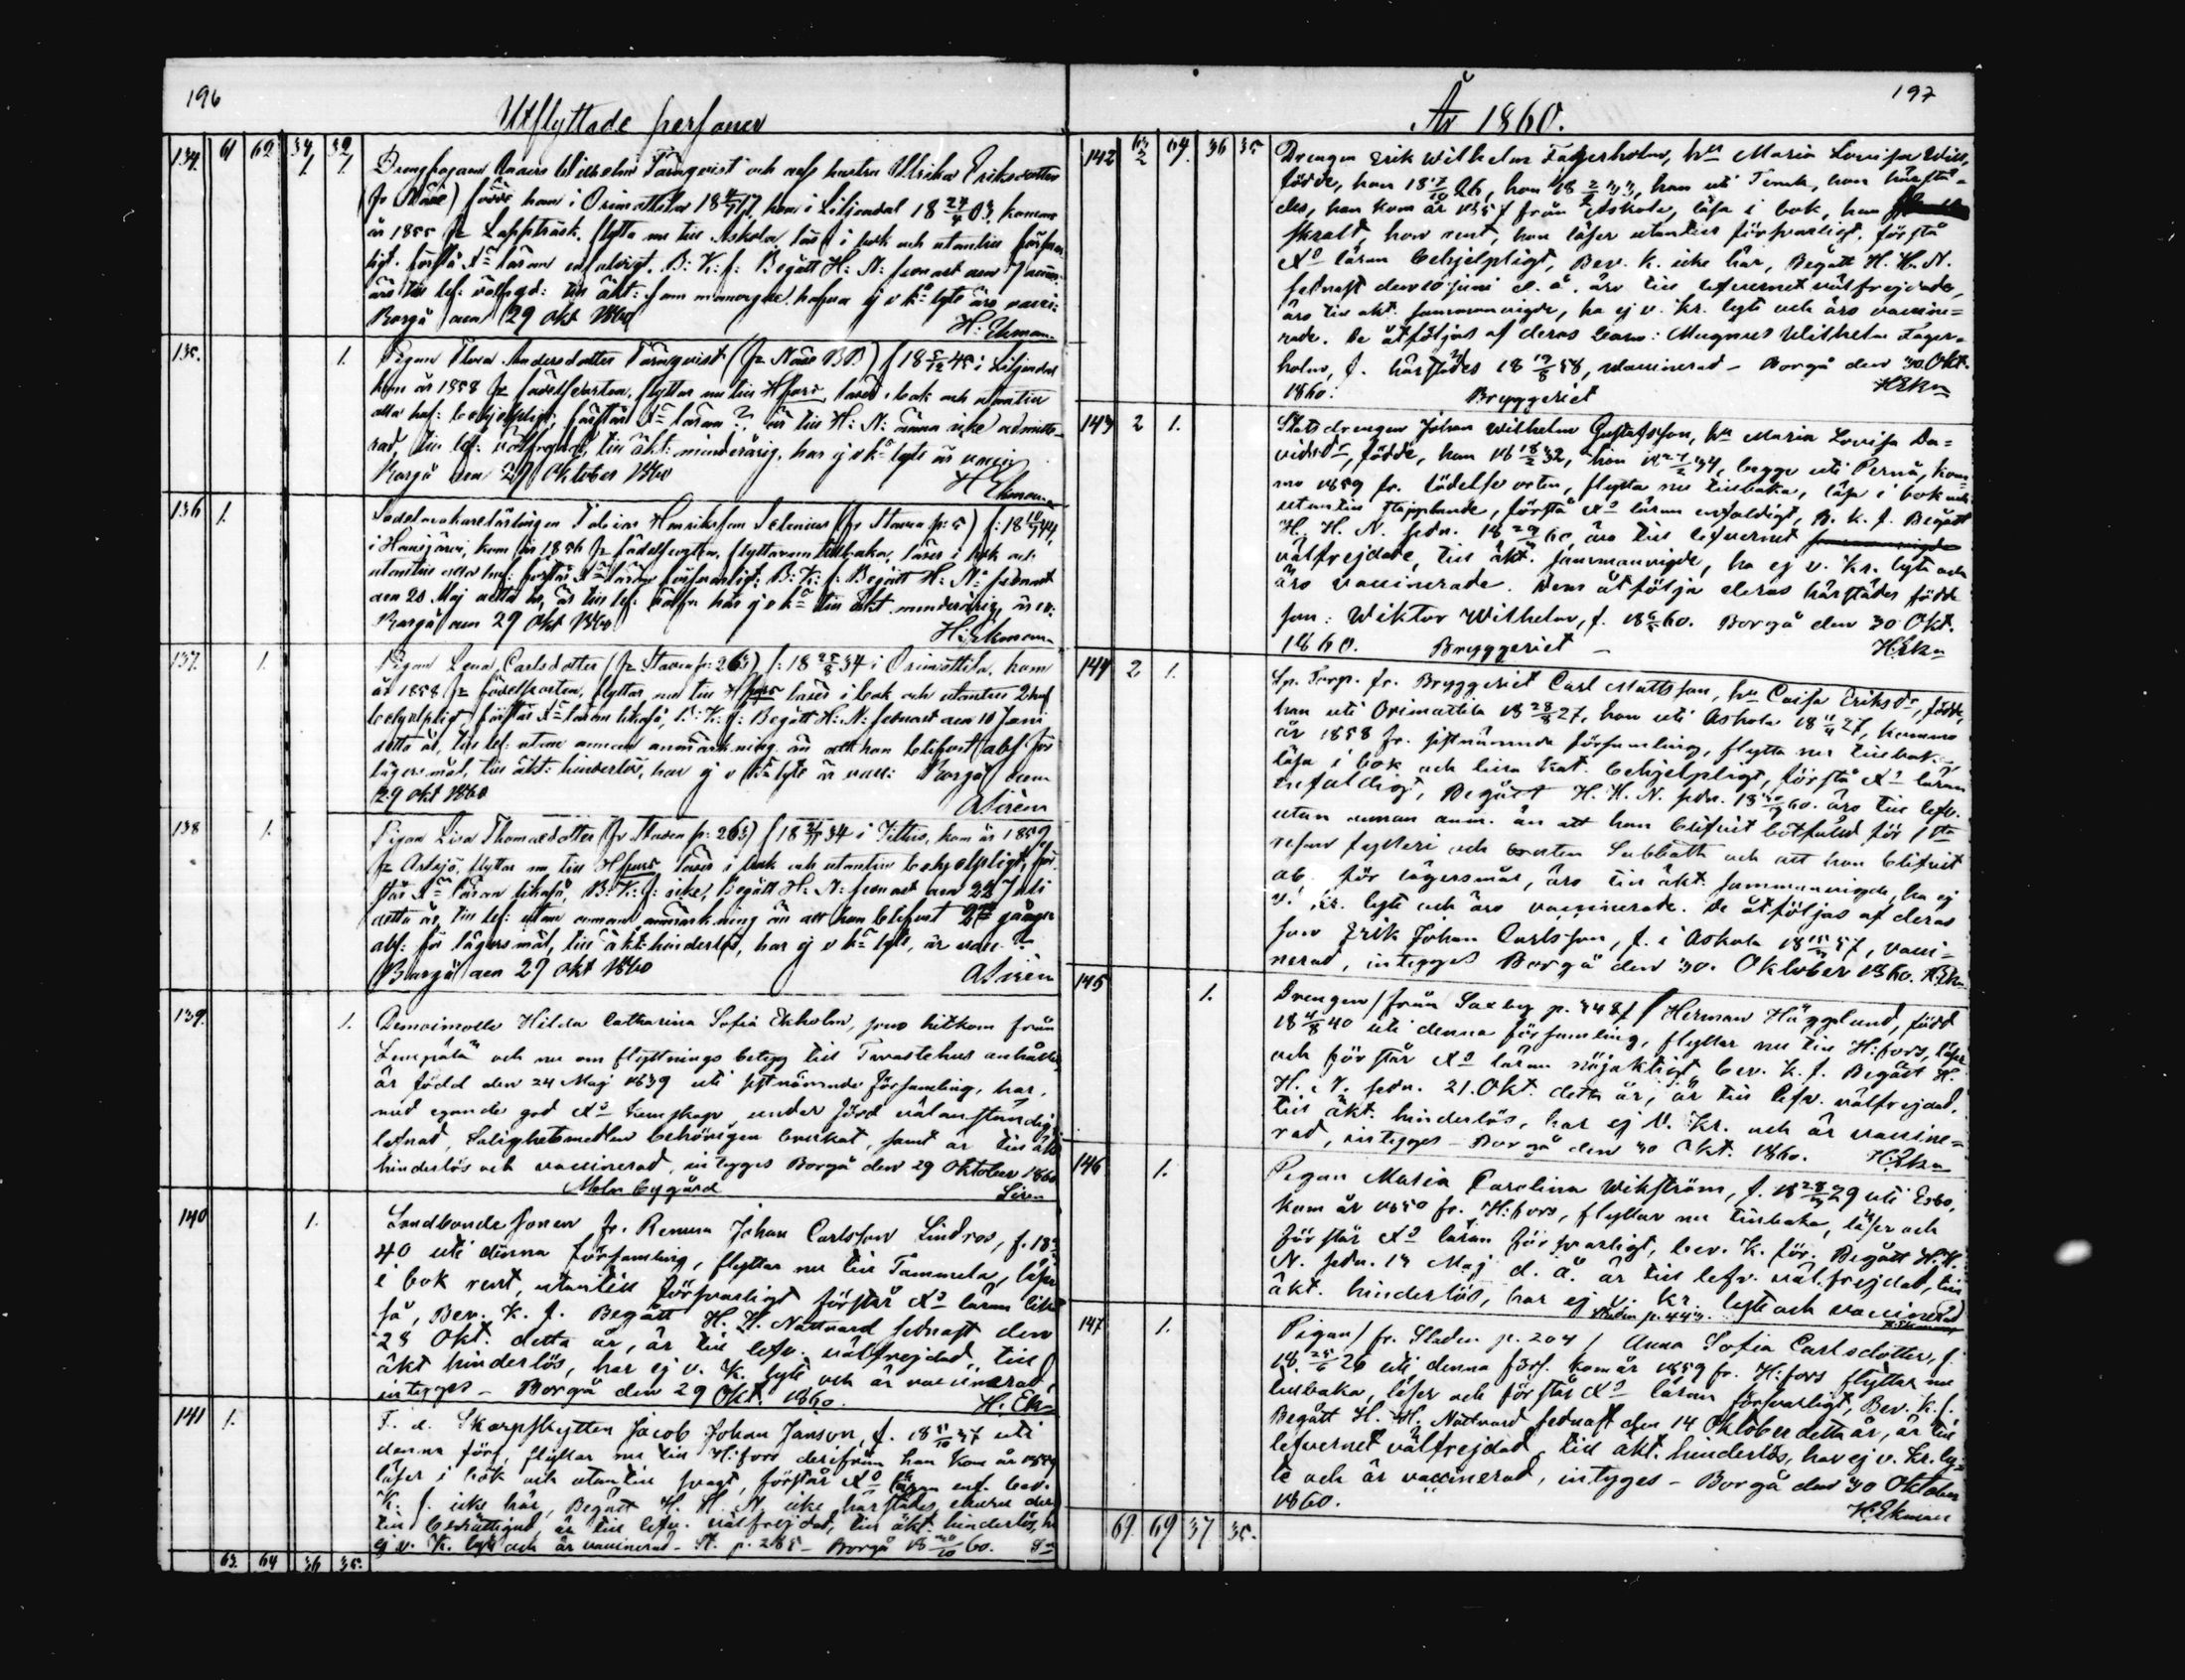 196
Utflyttade personer
134. 61 62 34 32
1. 1.
Drengkarlen Anders Wilhelm Färnqvist och dess hustru Ulrika Eriksdotter
(fr Näse) födde, han i Orimattila 18 17, hon i Liljendal 18 27/4 03, kommo
år 1855 fr Lappträsk, flytta nu till Askola, läsa i bok och utantill försvar
ligt, förstå Xna läran enfaldigt, B: K: f: Begått H: N: senast den
äro till lef: välfrejd: till äkt: sammanvigde, hafva ej v kr lyte äro vacci:
Borgå den 29 Okt 1860 H: Ekman
135. 1.
Pigan Flora Andersdotter Färnqvist (fr Näse BB) f 18 5/12 45 i Liljendal
kom år 1858 fr födelseorten, flyttar nu till Hfors, läser i bok och utantill
alla huf: behjelpligt, förstår Xna läran ?, är till H: N: ännu icke admitte-
rad, till lef: välfrejdad, till äkt: minderårig, har ej v kr lyte är vaccin
Borgå den 29 Oktober 1860 H Ekman
136 1.
Sadelmakarelärlingen Tobias Henriksson Selenius (fr Staden p: 5) f: 18 44
i Hausjärvi, kom år 1856 fr födelseorten, flyttar nu tillbaka, läser i bok och
utantill alla huf: förstår Xna läran försvarligt, B: K: f: Begått H: N: senast
den 20 Maj detta år, är till lef: välfr: har ej v kr till äkt minderårig, är v:
Borgå den 29 Okt 1860 H: Ekman
137. 1.
Pigan Lena Carlsdotter (fr Staden p: 263) f: 18 25/8 34 i Orimattila, kom
år 1858 fr födelseorten, flyttar nu till Hfors läser i bok och utantill 2 huf
behjelpligt, förstår Xna läran likaså, B: K: f: Begått H: N: senast den 10 Juni
detta år, till lef: utan annan anmärkning än att hon blifvit abs: för
lägersmål, till äkt: hinderlös, har ej v kr lyte är vacc: Borgå den
29 Okt 1860 A Sirén
138 1.
Pigan Lisa Thomasdotter (fr Staden p: 263) f 18 34 i Jittis, kom år 1859
fr Artsjö, flyttar nu till Hfors läser i bok och utantill behjelpligt, för
står Xna läran likaså, B: K: f: icke, Begått H: N: senast den 22 Juli
detta år, till lef: utan annan anmärkning än att hon blifvit 2ne gånger
abs: för lägersmål, till äkt: hinderlös, har ej v kr lyte, är vacc: ?
Borgå den 29 Okt 1860 A Sirén
139. 1.
Demoiselle Hilda Catharina Sofia Ekholm, som hitkom från
Lempälä och nu om flyttnings betyg till Tavastehus anhåller
är född den 24 Maj 1839 uti sistnämnde församling, har,
med egande god Xs kunskap, under förd välanständig
lefnad, Salighetsmedlen behörigen brukat, samt är till äkt
hinderlös och vaccinerad, intygges Borgå den 29 Oktober 1860
Molnbygård Sirén
140 1.
Landbonde sonen fr. Renum Johan Carlsson Lindros, f. 18
40 uti denna församling, flyttar nu till Tammela, läser
i bok rent, utantill försvarligt förstår Xs läran lika
så, Bev. K. f. Begått H. H. Nattvard sednast den
28 Okt. detta år, är till lefv. välfrejdad, till
äkt hinderlös, har ej v. K. lyte och är vaccinerad,
intygges - Borgå den 29 Okt. 1860. H. Ek
141 1.
F. d. Skarpskytten Jacob Johan Janson, f. 18 /10 37 uti
denna förs, flyttar nu till H:fors derifrån han kom år 1859
läser i bok och utantill svagt, förstår Xs läran enf. bev.
K. f. icke här, Begått H. H. N. icke härstädes, ehuru der
till berättigad, är till lefv. välfrejdad, till äkt. hinderlös, h
ej v. K. lyte och är vaccinerad - St. p. 265 - Borgå 18 30/10 60. Sn
63 64 36 35.
År 1860.
197
142 63 64. 36 35
2
Drengen Erik Wilhelm Fagerholm, hu Maria Lovisa Will,
födde, han 18 17/10 26, hon 18 2/2 33, han uti Tenala, hon härstä-
des, han kom år 1857 från Askola, läsa i bok, han
skralt, hon rent, hon läser utantill försvarligt, förstå
Xs läran behjelpligt, Bev. K. icke här, Begått H. H. N.
sednast den 10 juni d. å. äro till lefvernet välfrejdade,
äro till äkt. sammanvigde, ha ej v. Kr. lyte och äro vaccine=
rade. De åtföljas af deras barn: Magnus Wilhelm Fager-
holm, f. härstädes 18 19/8 58, vaccinerad - Borgå den 30 Okt.
1860. Bryggeriet H Ekn
143 2 1.
Statsdrengen Johan Wilhelm Gustafsson, hu Maria Lovisa Da=
vidsdr, födde, han 18 18/2 32, hon 18 27/2 34, begge uti Pernå, kom=
mo 1859 fr. födelse orten, flytta nu tillbaka, läsa i bok och
utantill stapplande, förstå Xs läran enfaldigt, B. K. f. Begått
H. H. N. sedn. 18 60 äro till lefvernet sammanvigde
välfrejdade, till äkt. sammanvigde, ha ej v. Kr. lyte och
äro vaccinerade. Dem åtfölja deras härstädes födde
son: Wiktor Wilhelm, f. 18 60. Borgå den 30 Okt.
1860. Bryggeriet - H. Ekn
144 2 1.
Sp. Torp. fr. Bryggeriet Carl Mattsson, hu Caisa Eriksdr, födde,
han uti Orimattila 18 28/8 27, hon uti Askola 18 27, kommo
år 1858 fr. sistnämnde församling, flytta nu tillbaka,
läsa i bok och lilla Kat. behjelpligt, förstå Xs läran
enfaldigt, Begått H. H. N. sedn. 18 60. äro till lefv.
utan annan anm. än att han blifvit bötfälld för 1sta
resan fylleri och bruten Sabbath och att hon blifvit
ab. för lägersmål, äro till äkt. sammanvigde, ha ej
v. Kr. lyte och äro vaccinerade. De åtföljas af deras
son Erik Johan Carlsson, f. i Askola 18 57, vacci-
nerad, intygges Borgå den 30. Oktober 1860. H Ekn
145 1.
Drengen / från Saxby p. 348 / Herman Hägglund, född
18 4/8 40 uti denna församling, flyttar nu till H:fors, läser
och förstår Xs läran nöjaktigt, bev. K. f. Begått H.
H. N. sedn. 21. Okt. detta år, är till lefv. välfrejdad,
till äkt. hinderlös, har ej V. Kr. och är vaccine=
rad, intygges - Borgå den 30 Okt. 1860. H. Ekn
146 1.
Pigan Maria Carolina Wikström, f. 18 28/ 29 uti Esbo,
kom år 1850 fr. H:fors, flyttar nu tillbaka, läser och
förstår Xs läran försvarligt, bev. K. för. Begått H. H.
N. sedn. 13 Maj d. å. är till lefv. välfrejdad, till
äkt. hinderlös, har ej v. Kr. lyte och vaccinerad
Staden p. 443.
147 1.
Pigan / fr. Staden p. 204 / Anna Sofia Carlsdotter, f.
18 25/6 26 uti denna förs. kom år 1859 fr. H:fors flyttar nu
tillbaka, läser och förstår Xs läran försvarligt, Bev. K. f.
Begått H. H. Nattvard sednast den 14 Oktober detta år, är till
lefvernet välfrejdad, till äkt. hinderlös, har ej v. Kr. ly=
te och är vaccinerad, intyges - Borgå den 30 Oktober
1860. H. Ekman
69 69 37. 35.